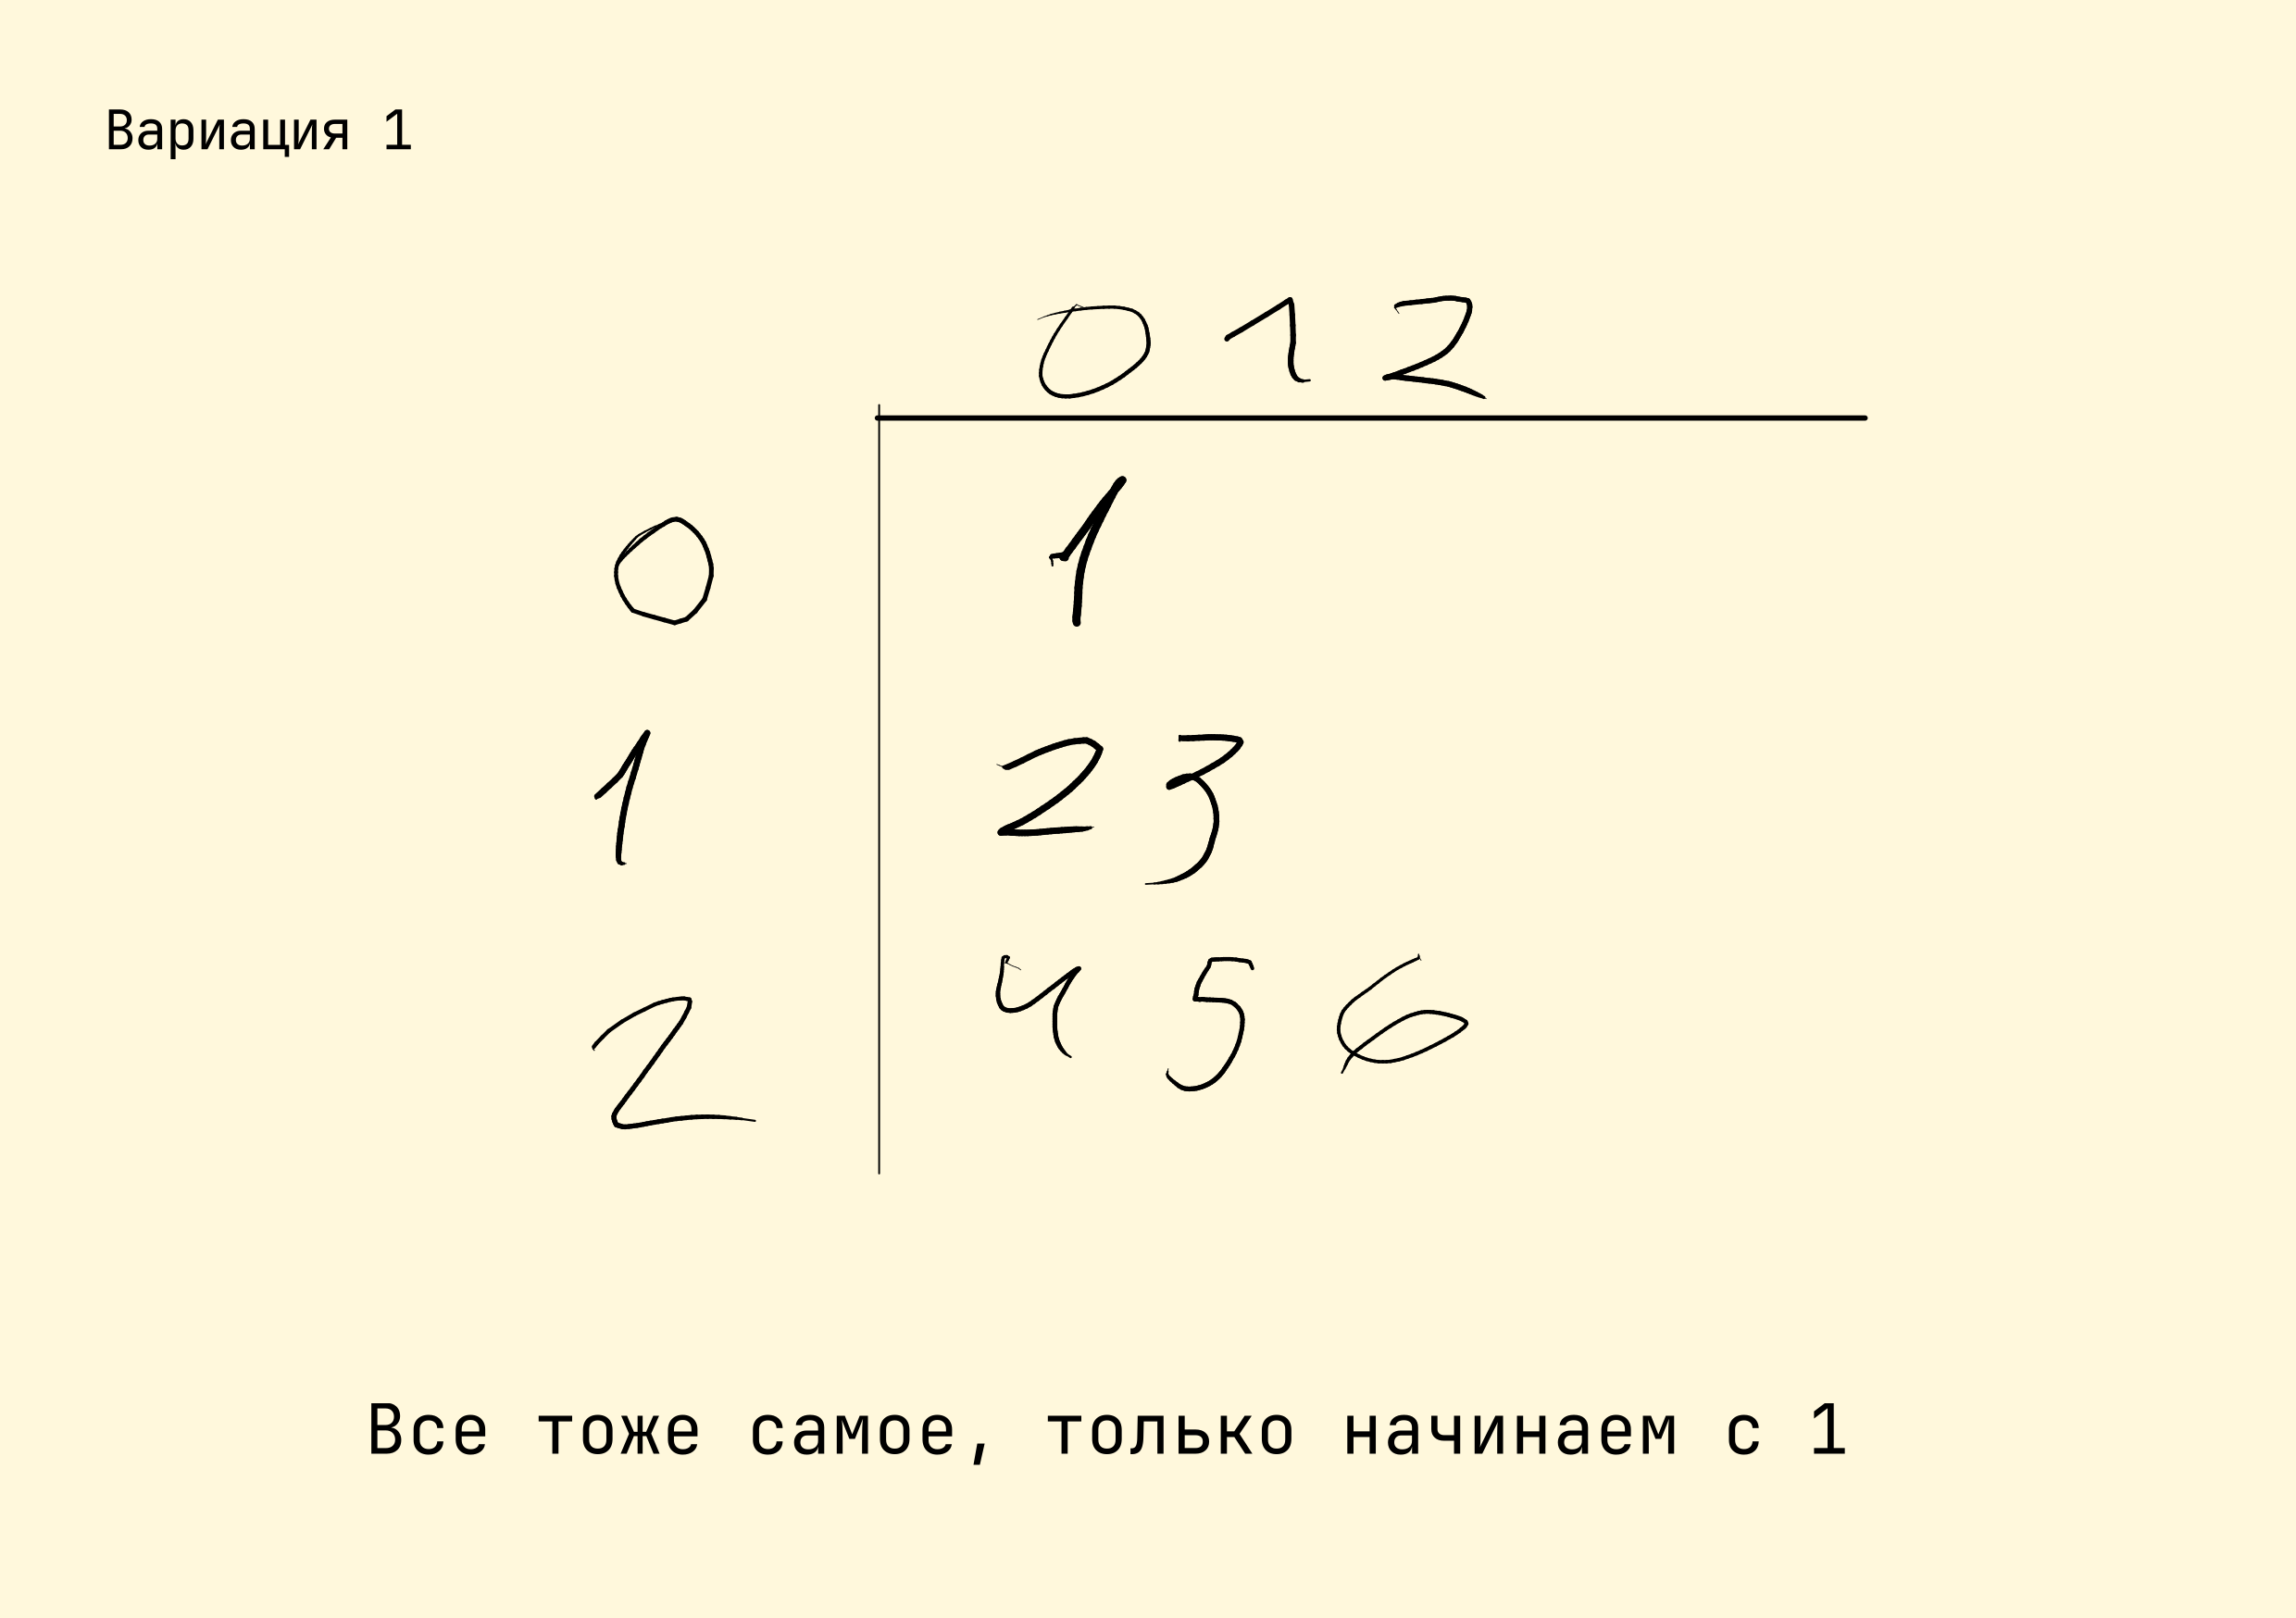 Вариация 1
0 1 2
0 1
1 2 3
2 4 5 6
Все тоже самое, только начинаем с 1